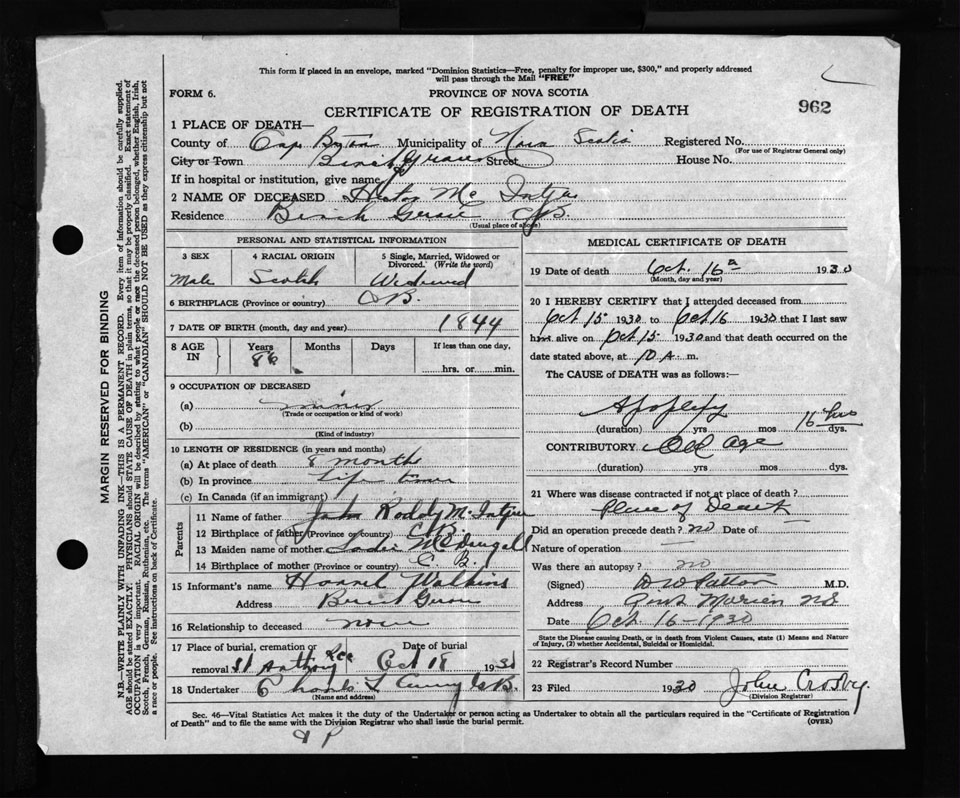 This form if placed in an envelope, marked "Dominion Statistics—Free, penalty for improper use, $300," and properly addressed
will pass through the Mail "FREE"
FORM 6.
PROVINCE OF NOVA SCOTIA
962
CERTIFICATE OF REGISTRATION OF DEATH
1 PLACE OF DEATH—
County of Cape Breton Municipality of Nova Scotia Registered No.
(For use of Registrar General only)
City or Town Birch Grove Street House No.
If in hospital or institution, give name
2 NAME OF DECEASED Hector Mc Intyre
Residence Birch Grove C.B.
(Usual place of abode)
PERSONAL AND STATISTICAL INFORMATION
3 SEX 4 RACIAL ORIGIN 5 Single, Married, Widowed or Divorced. (Write the word)
Male Scotch Widowed
6 BIRTHPLACE (Province or country) C B.
7 DATE OF BIRTH (month, day and year) 1844
8 AGE IN Years Months Days If less than one day,
86 hrs. or min.
9 OCCUPATION OF DECEASED
(a) miner
(Trade or occupation or kind of work)
(b)
(Kind of industry)
10 LENGTH OF RESIDENCE (in years and months)
(a) At place of death 8 months
(b) In province Life time
(c) In Canada (if an immigrant)
Parents
11 Name of father John Roddy McIntyre
12 Birthplace of father (Province or country) C.B.
13 Maiden name of mother McDougall
14 Birthplace of mother (Province or country) C. B.
15 Informant's name Watkins
Address Birch Grove
16 Relationship to deceased none
17 Place of burial, cremation or removal St Anthony Date of burial Oct 18 1930
18 Undertaker
(Name and address)
MEDICAL CERTIFICATE OF DEATH
19 Date of death Oct. 16 1930
(Month, day and year)
20 I HEREBY CERTIFY that I attended deceased from
Oct 15 1930 to Oct 16 1930 that I last saw
him alive on Oct 15 1930 and that death occurred on the
date stated above, at 10 A. m.
The CAUSE of DEATH was as follows:—
Apoplexy
16 hrs
(duration) yrs mos dys.
CONTRIBUTORY Old age
(duration) yrs mos dys.
21 Where was disease contracted if not at place of death?
Place of Death
Did an operation precede death? no Date of
Nature of operation —
Was there an autopsy? no
(Signed) D W Patton M.D.
Address Port Morien NS
Date Oct. 16-1930
State the Disease causing Death, or in death from Violent Causes, state (1) Means and Nature
of Injury, (2) whether Accidental, Suicidal or Homicidal.
22 Registrar's Record Number
23 Filed 1930 John Crosby.
(Division Registrar)
Sec. 46—Vital Statistics Act makes it the duty of the Undertaker or person acting as Undertaker to obtain all the particulars required in the "Certificate of Registration
of Death" and to file the same with the Division Registrar who shall issue the burial permit.
(OVER)
MARGIN RESERVED FOR BINDING
N.B.—WRITE PLAINLY WITH UNFADING INK—THIS IS A PERMANENT RECORD. Every item of information should be carefully supplied.
AGE should be stated EXACTLY. PHYSICIANS should STATE CAUSE OF DEATH in plain terms, so that it may be properly classified. Exact statement of
OCCUPATION is very important. RACIAL ORIGIN will be described by stating to what people or race the deceased person belonged, whether English, Irish,
Scotch, French, German, Russian, Ruthenian, etc. The terms "AMERICAN" or "CANADIAN" SHOULD NOT BE USED as they express citizenship but not
a race or people. See instructions on back of Certificate.